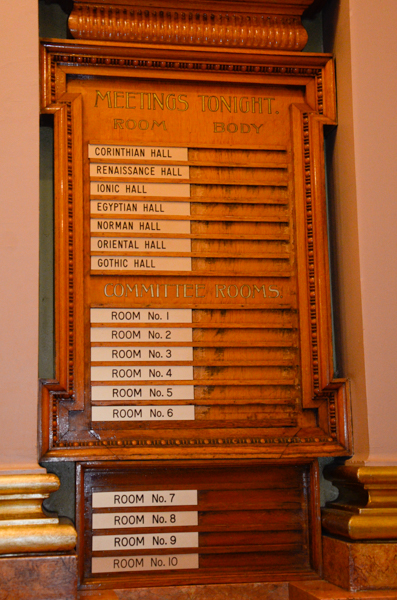 MEETINGS TONIGHT.
ROOM BODY
CORINTHIAN HALL
RENAISSANCE HALL
IONIC HALL
EGYPTIAN HALL
NORMAN HALL
ORIENTAL HALL
GOTHIC HALL
COMMITTEE ROOMS.
ROOM No. 1
ROOM No. 2
ROOM No. 3
ROOM No. 4
ROOM No. 5
ROOM No. 6
ROOM No. 7
ROOM No. 8
ROOM No. 9
ROOM No. 10